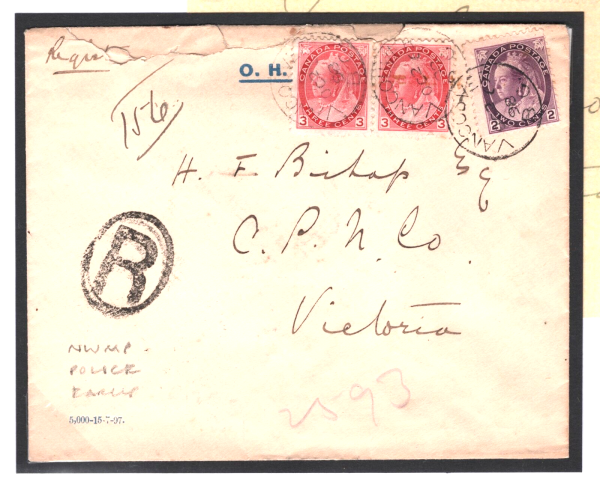 Regist
O. H.
156
CANADA POSTAGE
3 THREE CENTS 3
CANADA POSTAGE
3 THREE CENTS 3
CANADA POSTAGE
2 TWO CENTS 2
H. F. Bishop Esq
C. P. N. Co.
Victoria
R
NWMP -
POLICE
EARLY
5,000-15-7-97.
2593